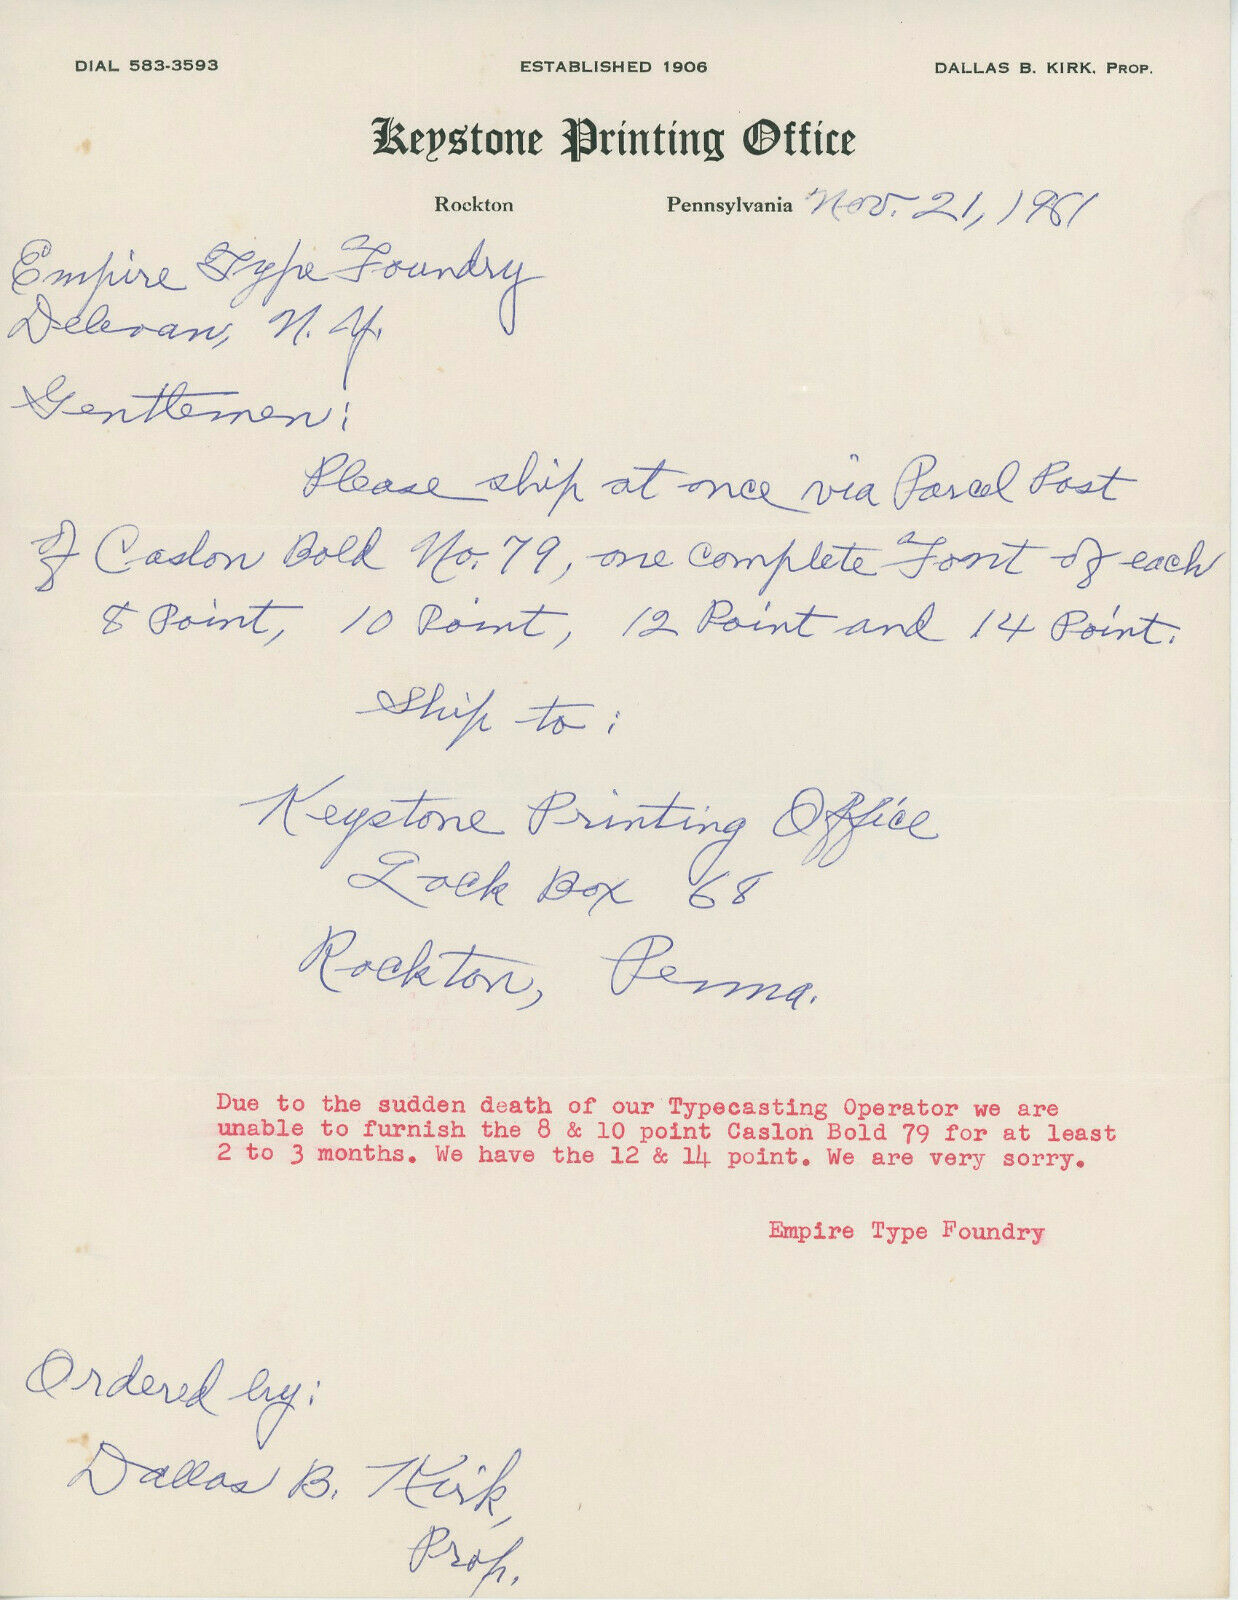 DIAL 583-3593 ESTABLISHED 1906 DALLAS B. KIRK, PROP.
Keystone Printing Office
Rockton Pennsylvania Nov. 21, 1981
Empire Type Foundry
Delevan, N. Y.
Gentlemen:
Please ship at once via Parcel Post
of Caslon Bold No. 79, one complete Font of each
8 Point, 10 Point, 12 Point and 14 Point.
Ship to:
Keystone Printing Office
Lock Box 68
Rockton, Penna.
Due to the sudden death of our Typecasting Operator we are
unable to furnish the 8 & 10 point Caslon Bold 79 for at least
2 to 3 months. We have the 12 & 14 point. We are very sorry.
Empire Type Foundry
Ordered by:
Dallas B. Kirk,
Prop.